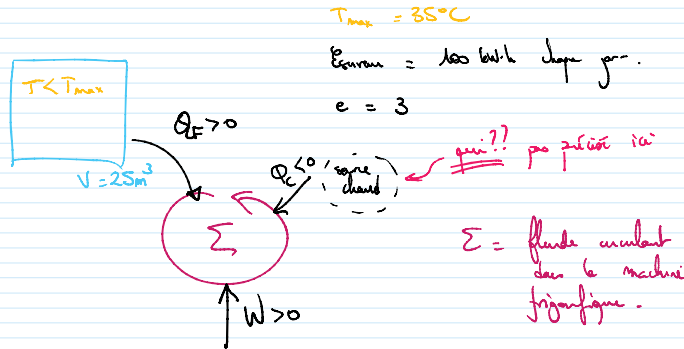 Tmax = 35°C
Eserveurs = 100 kWh chaque jour.
e = 3
T < Tmax
V = 25m³
QF > 0
QC < 0
source chaud
qui?? pas précisé ici
Σ
W > 0
Σ = fluide circulant
dans la machine
frigorifique.